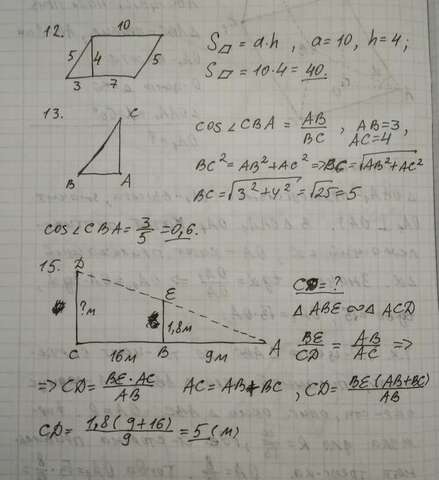 12.
10
5 4 5
3 7
S▱ = a·h , a=10, h=4;
S▱ = 10·4 = 40.
13.
C
B A
cos∠CBA = AB/BC , AB=3, AC=4
BC² = AB² + AC² => BC = √AB²+AC²
BC = √3²+4² = √25 = 5
cos∠CBA = 3/5 = 0,6.
15.
D
E
?м 1,8м
C B A
16м 9м
CD = ?
△ABE ∞ △ACD
BE/CD = AB/AC =>
=> CD = BE·AC/AB AC = AB+BC , CD = BE(AB+BC)/AB
CD = 1,8(9+16)/9 = 5 (м)